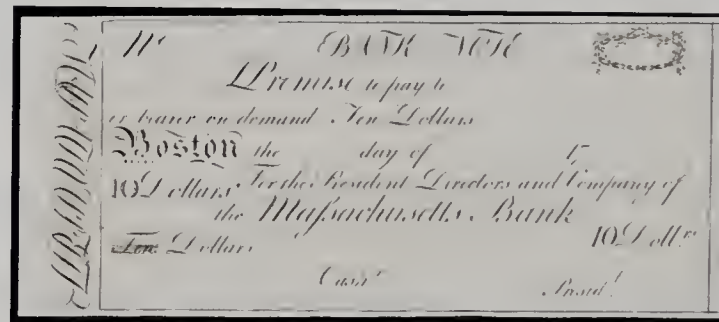 No BANK NOTE
I Promise to pay to
or bearer on demand Ten Dollars
Boston the day of 17
10 Dollars For the President Directors and Company of
the Maſsachusetts Bank
Ten Dollars 10 Dollrs
Cashr Presidt